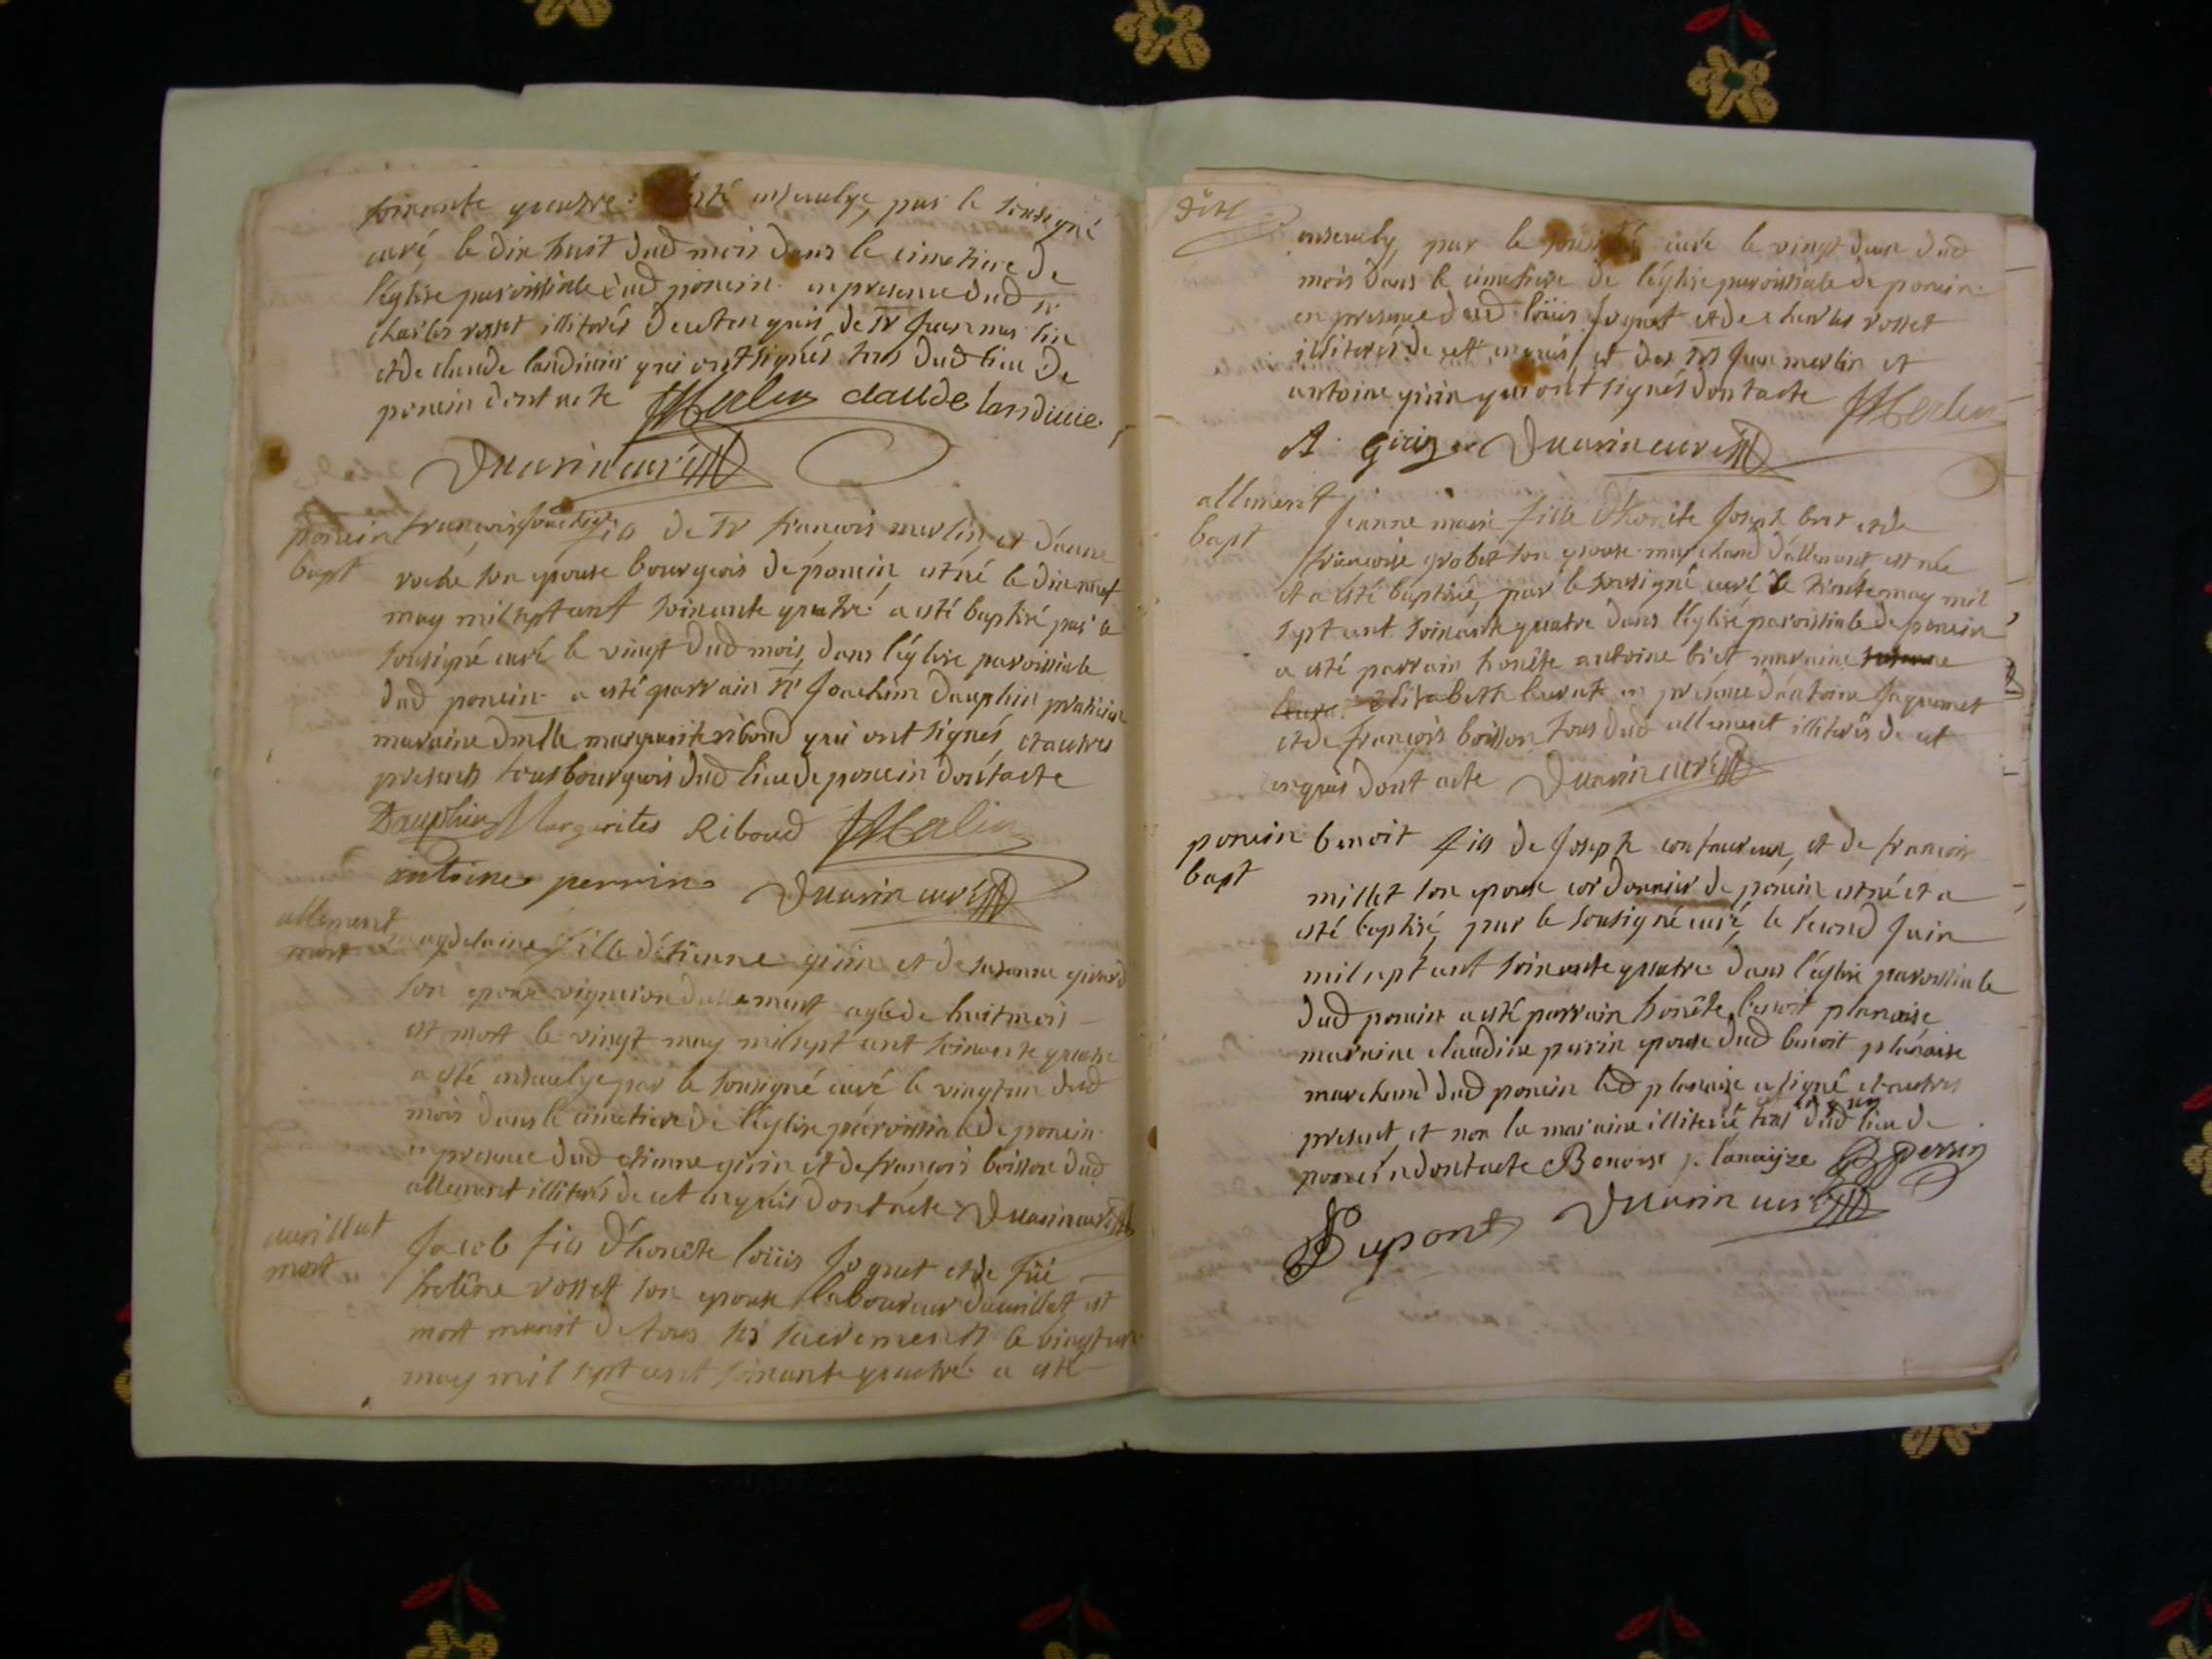 soixante quatre: esté ensevelye par le sousigné
curé le dix huit dud mois dans le cimetiere de
l'eglise paroissiale dud poncin en presence dud
charles rosset illiterés de cet enquis, de sr jean merlin
et de claude landinier qui ont signés tous dud lieu de
poncin dont acte JMerlin claude landinie
Duarin curé
poncin
bapt
francois joachin fils de sr francois merlin, et d'anne
roche son epouse bourgeois de poncin, est né le dix neuf
may mil sept cent soixante quatre. a esté baptisé par le
sousigné curé le vingt dud mois, dans l'eglise paroissiale
dud poncin. a esté parrain sr Joachim dauphin praticien
maraine dmlle marguerite riboud qui ont signés, et autres
presents tous bourgeois dud lieu de poncin dont acte
Dauphin Margarites Riboud JMerlin
antoine perrin Duarin curé
allement
mort
magdelaine fille d'etienne girin et de susanne girard
son epouse vigneron dallement agée de huit mois
est mort le vingt may mil sept cent soixante quatre
a esté ensevelye par le sousigné curé le vingt un dud
mois dans le cimetiere de l'eglise paroissiale de poncin
en presence dud etienne girin et de francois boisson dud
allement illiterés de cet enquis dont acte Duarin curé
avrillat
mort
Jacob fils d'honête loüis Joguet et de füe
helêne rosset son epouse laboureur davrillat est
mort munit de tous ses sacrements le vingt un
may mil sept cent soixante quatre. a esté
ensevely, par le sousigné curé le vingt deux dud
mois dans le cimetiere de l'eglise paroissiale de poncin
en presence dud loüis Joguet et de charles rosset
illiterés de cet enquis, et des srs Jean merlin et
antoine girin qui ont signés dont acte JMerlin
A. Girin Duarin curé
allement
bapt
Jeanne marie fille d'honête Joseph bret et de
francoise grobet son epouse marchand d'allement, est née
et a esté baptisée, par le sousigné curé le trente may mil
sept cent soixante quatre dans l'eglise paroissiale de poncin
a esté parrain honête antoine bret maraine
Elisabeth en présence d'antoine Jaquemet
et de francois boisson tous dud allement illiterés de cet
enquis dont acte Duarin curé
poncin
bapt
benoit fils de Joseph confavreux, et de francoise
millet son epouse cordonnier de poncin est né et a
esté baptisé, par le sousigné curé, le second Juin
mil sept cent soixante quatre. dans l'eglise paroissiale
dud poncin a esté parrain honête benoit planaise
maraine claudine perrin epouse dud benoit planaise
marchand dud poncin led planaise a signé et autres
present, et non la maraine illiterée tous dud lieu de
poncin dont acte Benoist planaijze perrin
Dupont Duarin curé